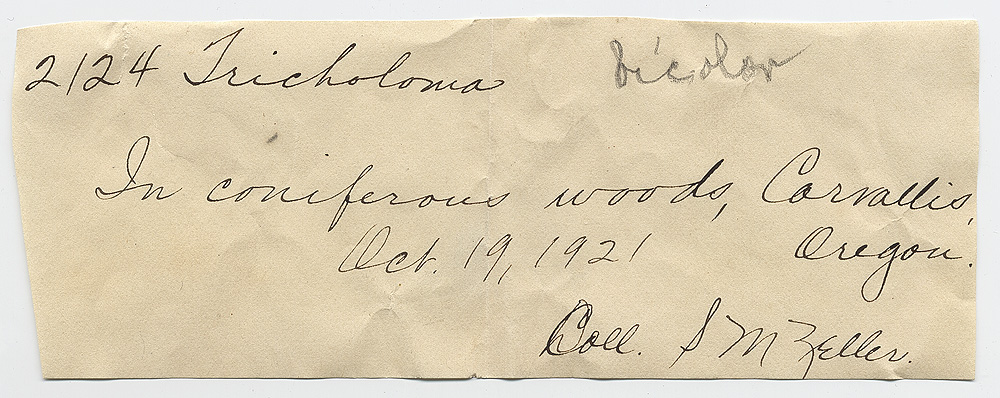 2124 Tricholoma bicolor
In coniferous woods, Corvallis,
Oct. 19, 1921 Oregon.
Coll. S M Zeller.